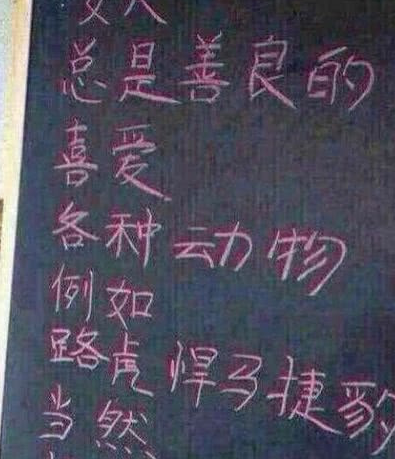 女人
总是善良的
喜爱
各种动物
例如
路虎悍马捷豹
当然